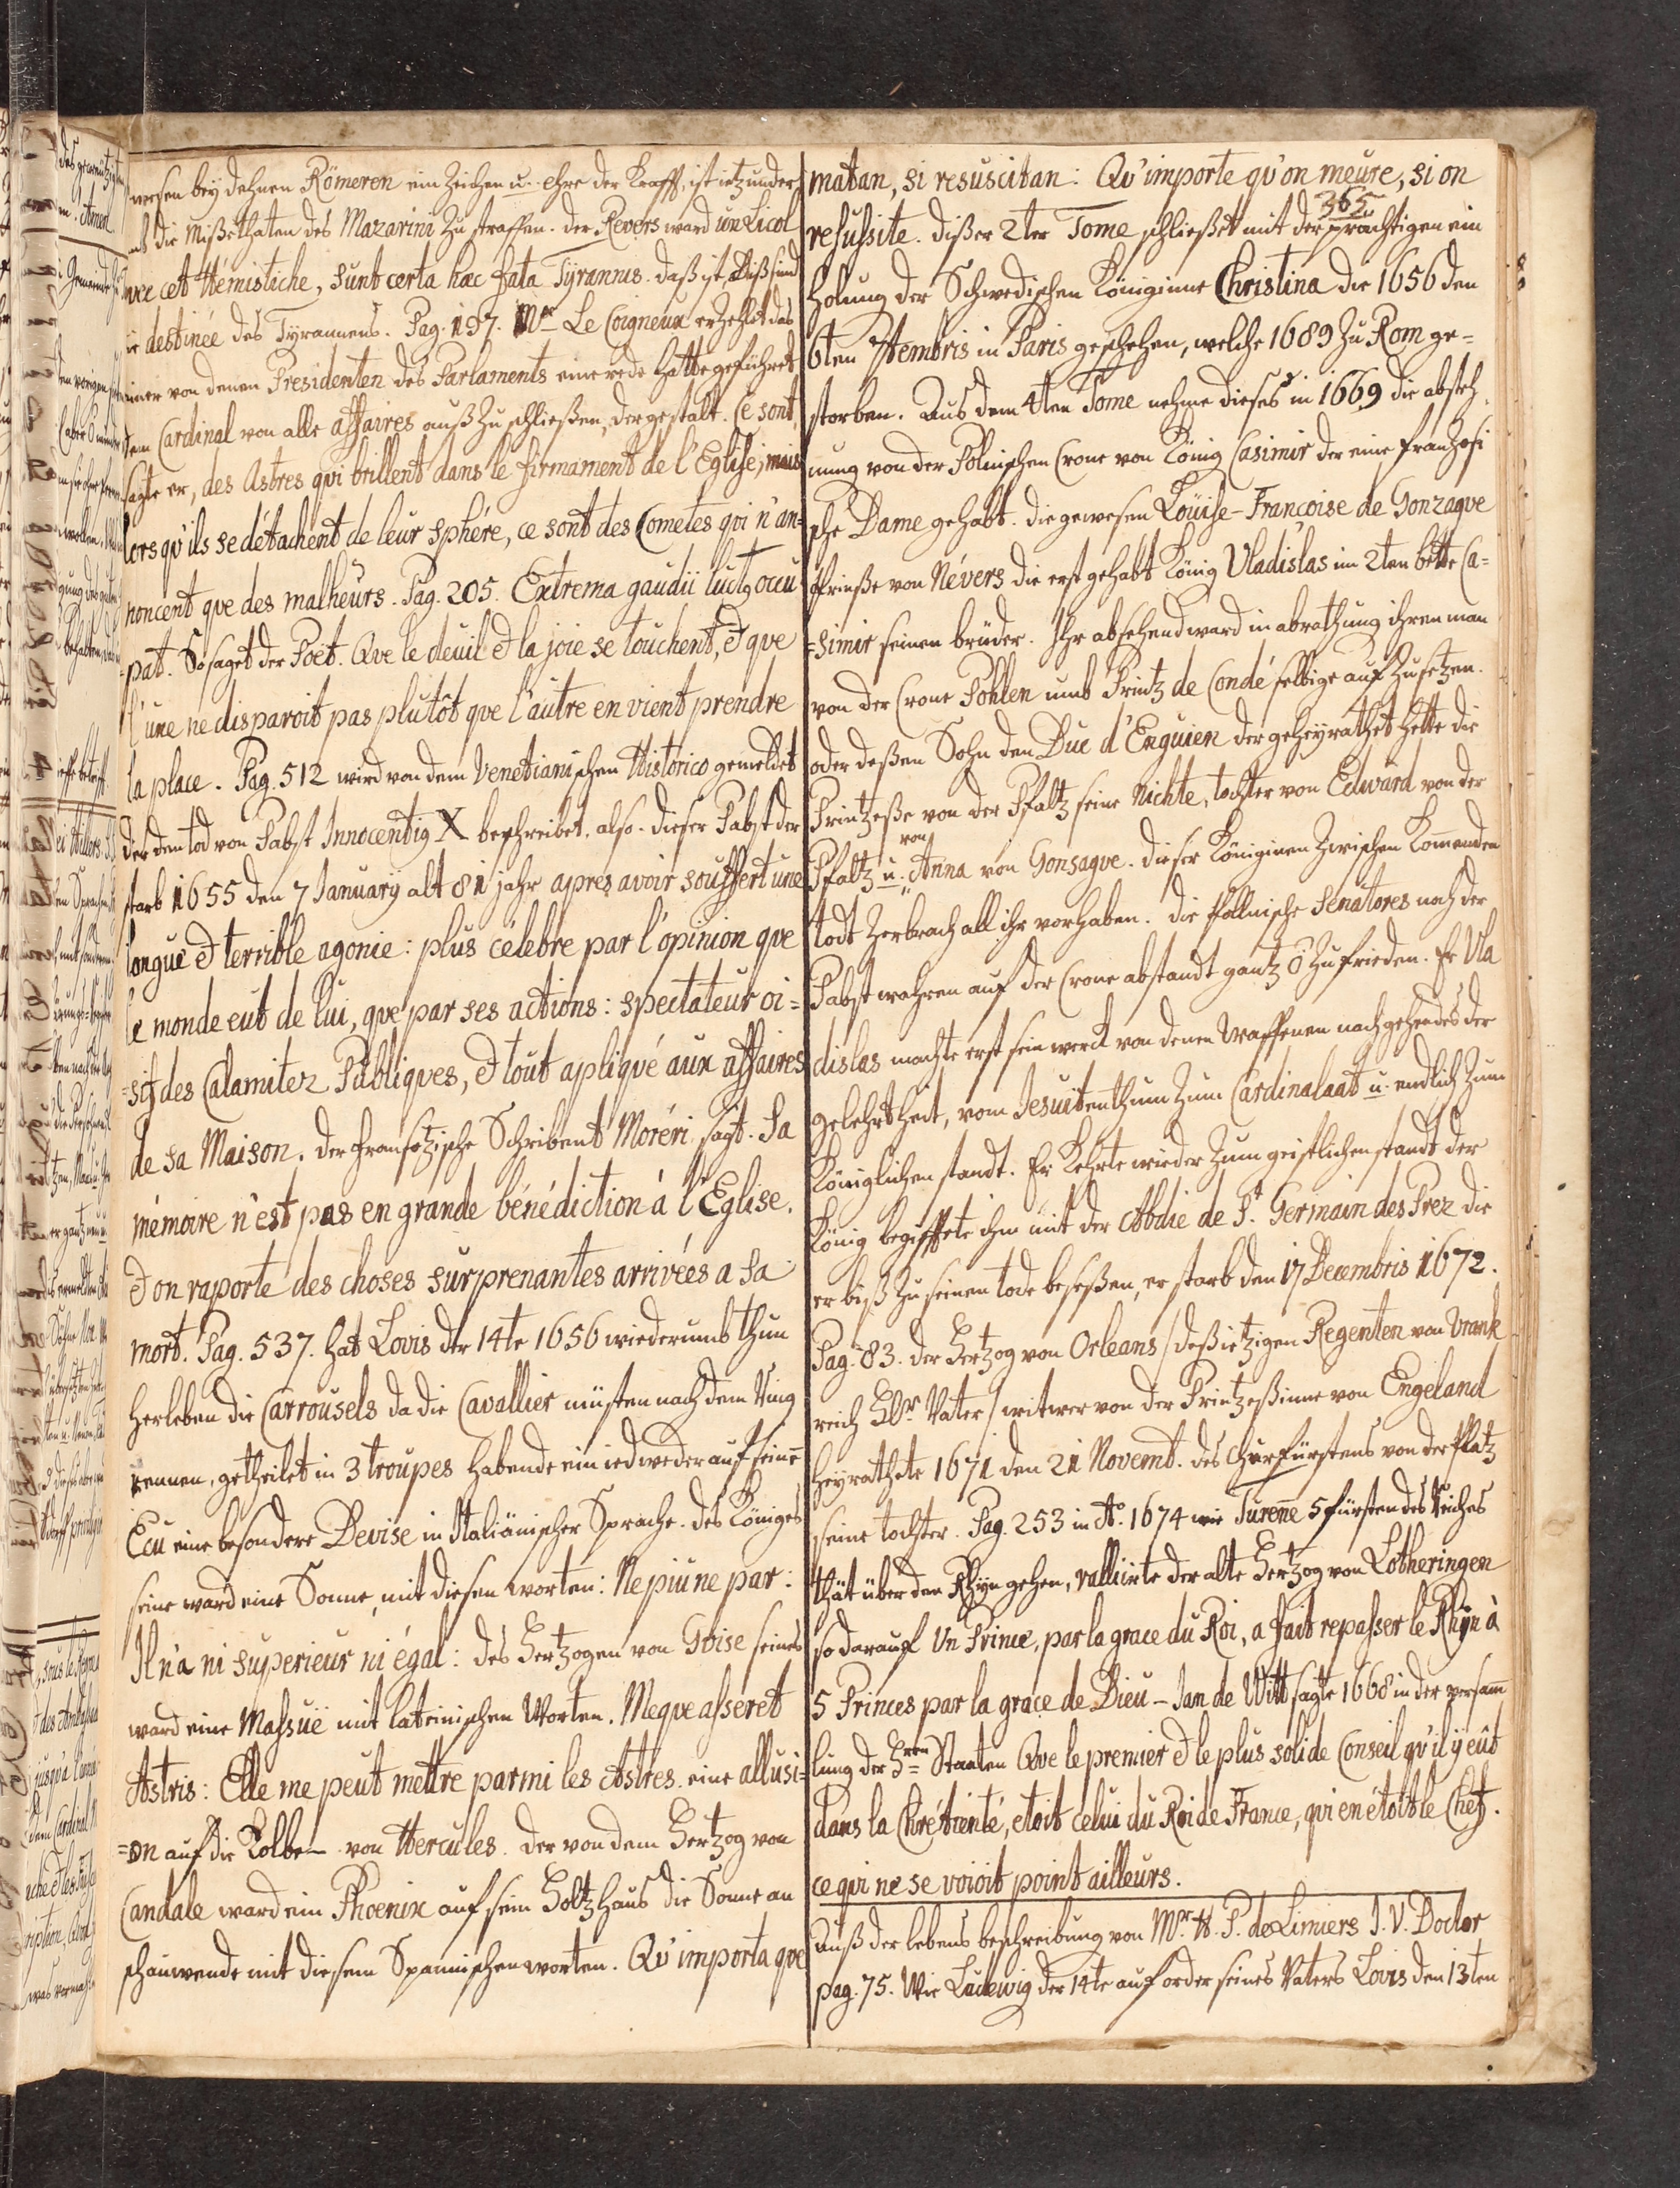 wesen bey dehnen Römeren ein Zeichen u. ehre der Krafft, ist ietzunder
die Mißethaten des Mazarini Zu straffen. der Revers ward un Licol
avec cet Hémistiche, sunt certa hæc fata Tÿrannis. daß ist, diß sind
die destinée des Tyrannens. Pag. 197. Mr. Le Coigneux erzehlet das
einer von denen Presidenten des Parlaments eine rede hatte geführet
dem Cardinal von alle affaires auß Zu schließen, dergestalt. Ce sont,
sagte er, des Astres qvi brillent dans le firmament de l'Eglise, mais
lors qv'ils se détachent de leur sphére, ce sont des Cometes qvi n'an=
noncent qve des malheurs. Pag. 205. Extrema gaudii luctg occu
=pat. So saget der Poët. Qve le deuil & la joie se touchent, & qve
l'une ne disparoit pas plutôt qve l'autre en vient prendre
la place. Pag. 512 wird von dem Venetianischen Historico gemeldet
der den tod von Pabst Innocentig X beschreibet. also. dieser Pabst der
starb 1655 den 7 January alt 81 jahr apres avoir souffert une
longuë & terrible agonie: plus célebre par l'opinion que
le monde eut de lui, qve par ses actions: spectateur oi=
=sif des Calamitez Publiqves, & tout apliqvé aux affaires
de sa Maison. der Fransotzische Schribent Moréri sagt. Sa
mémoire n'est pas en grande bénédiction á l'Eglise.
& on raporte des choses surprenantes arrivées a sa
mort. Pag. 537. hat Lovis der 14te 1656 wiederumb thun
herleben die Carrousels da die Cavallier müsten nach dem Ring
rennen, getheilet in 3 troupes habende ein iedweder auf seine
Ecu eine besondere Devise in Italiänischer Sprache. des Königes
seine ward eine Sonne, mit diesen worten: Ne piu ne par:
Il n'a ni superieur ni égal: des Hertzogen von Gvise seines
ward eine Massuë mit lateinischen Worten. Meqve asseret
Astris: Elle me peut mettre parmi les Astres. eine allusi=
=on auf die Kolben von Hercules. der von dem Hertzog von
Candale ward ein Phoenix auf sein Holtzhaus die Sonne an
schauwende mit diesem Spannischen worten. Qv'importa qve
365
matan, si resuscitan: Qv'importe qv'on meure, si on
resussite. dißer 2ter Tome schließet mit der prächtigen ein
holung der Schwedischen Königinne Christina die 1656 den
6ten 7tembris in Paris geschehen, welche 1689 Zu Rom ge=
storben. Aus dem 4ten Tome nehme dieses in 1669 die abseh
nung von der Polnischen Crone von König Casimir der eine franzosi
sche Dame gehabt. die gewesen Loüise-Francoise de Gonzagve
Prinße von Névers die erst gehabt König Vladislas im 2ten bette Ca=
=simir seinen brüder. Ihr absehend ward in abrathung ihren man
von der Crone Pohlen umb Printz de Condé selbige auf Zu setzen.
oder deßen Sohn den Duc d'Enguien der geheyrathet hatte die
Printzeße von der Pfaltz seine Nichte, tochter von Edward von der
Pfaltz u. von Anna von Gonsagve. dieser Königinen Zwischen Komenden
todt Zerbrach all ihr vorhaben. die Pollnische Senatores noch der
Pabst wahren auf der Crone abstandt gantz ō Zufrieden. Er Vla
dislas machte erst sein werck von denen Waffenen nachgehendes der
gelehrtheit, vom Jesuitenthum Zum Cardinalaat u. endlich Zum
Königlichen standt. Er kehrte wieder Zum geistlichen standt der
König begifftete ihm mit der Abdie de St. Germain des Prez die
er biß Zu seinen tode beseßen, er starb den 17 Decembris 1672.
Pag. 83. der Hertzog von Orleans / deß ietzigen Regenten von Vrank
reich Hr. Vater / witwer von der Printzeßinne von Engeland
heyrathete 1671 den 21 Novemb. des Churfürstens von der Pfaltz
seine tochter. Pag. 253 in Ao. 1674 wie Turenne 5 fürsten des Reiches
thät über den Rhyn gehen, ralliirte der alte Hertzog von Lotheringen
so darauf Un Prince, par la grace du Roi, a fait repasser le Rhyn à
5 Princes par la grace de Dieu - Jan de Witt sagte 1668 in der versam
lung der Hren Staaten Qve le premier & le plus solide Conseil qv'il ÿ eût
dans la Chrétienté, etoit celui du Roi de France, qvi en étoit le Chef.
ce qvi ne se voioit point ailleurs.
auß der lebens beschreibung von Mr. H. P. de Limiers J. V. Doctor
pag. 75. Wie Ludewig der 14te auf order seines Vaters Lovis den 13ten